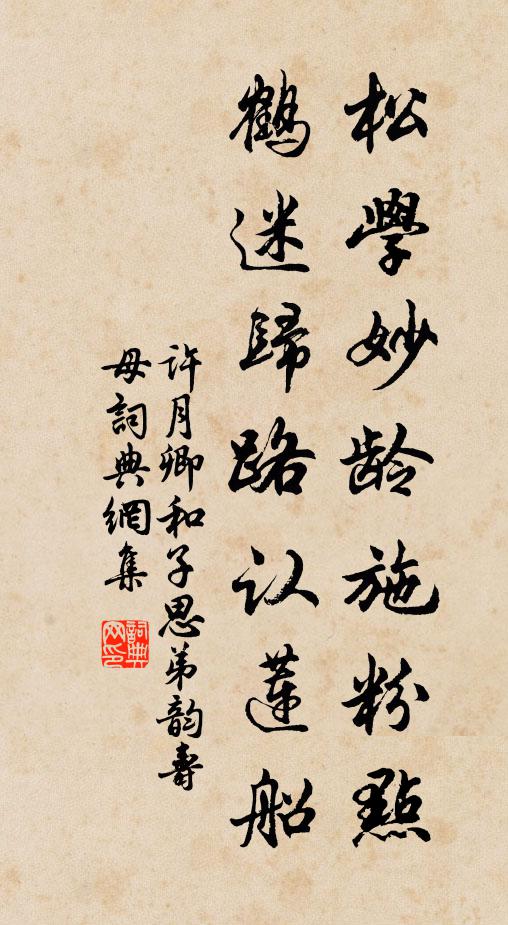 松學妙龄施粉點
鶴迷歸路认蓮船
许月卿和子思弟韵壽
母詞典網集
詞典
网印